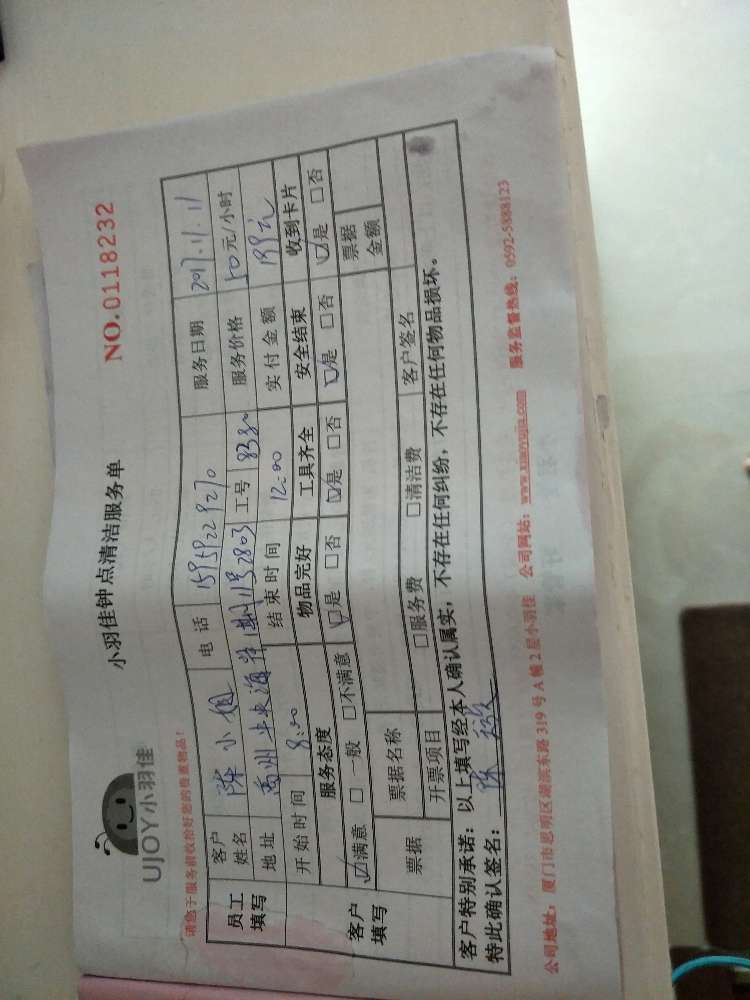 UJOY小羽佳
小羽佳钟点清洁服务单
NO.0118232
请您于服务前收拾好您的贵重物品!
员工填写
客户姓名 陈小姐 电话 15959229270 服务日期 2017.11.11
地址 禹州中央海岸 11号2803 工号 8380 服务价格 50元/小时
开始时间 8:30 结束时间 12:00 实付金额 199元
客户填写
服务态度 物品完好 工具齐全 安全结束 收到卡片
满意 一般 不满意 是 否 是 否 是 否 是 否
票据 票据名称 票据金额
开票项目 服务费 清洁费 客户签名
客户特别承诺:以上填写经本人确认属实,不存在任何纠纷,不存在任何物品损坏。
特此确认签名: 陈
公司地址:厦门市思明区湖滨东路319号A幢2层小羽佳 公司网站:www.xiaoyujia.com 服务监督热线:0592-5888123